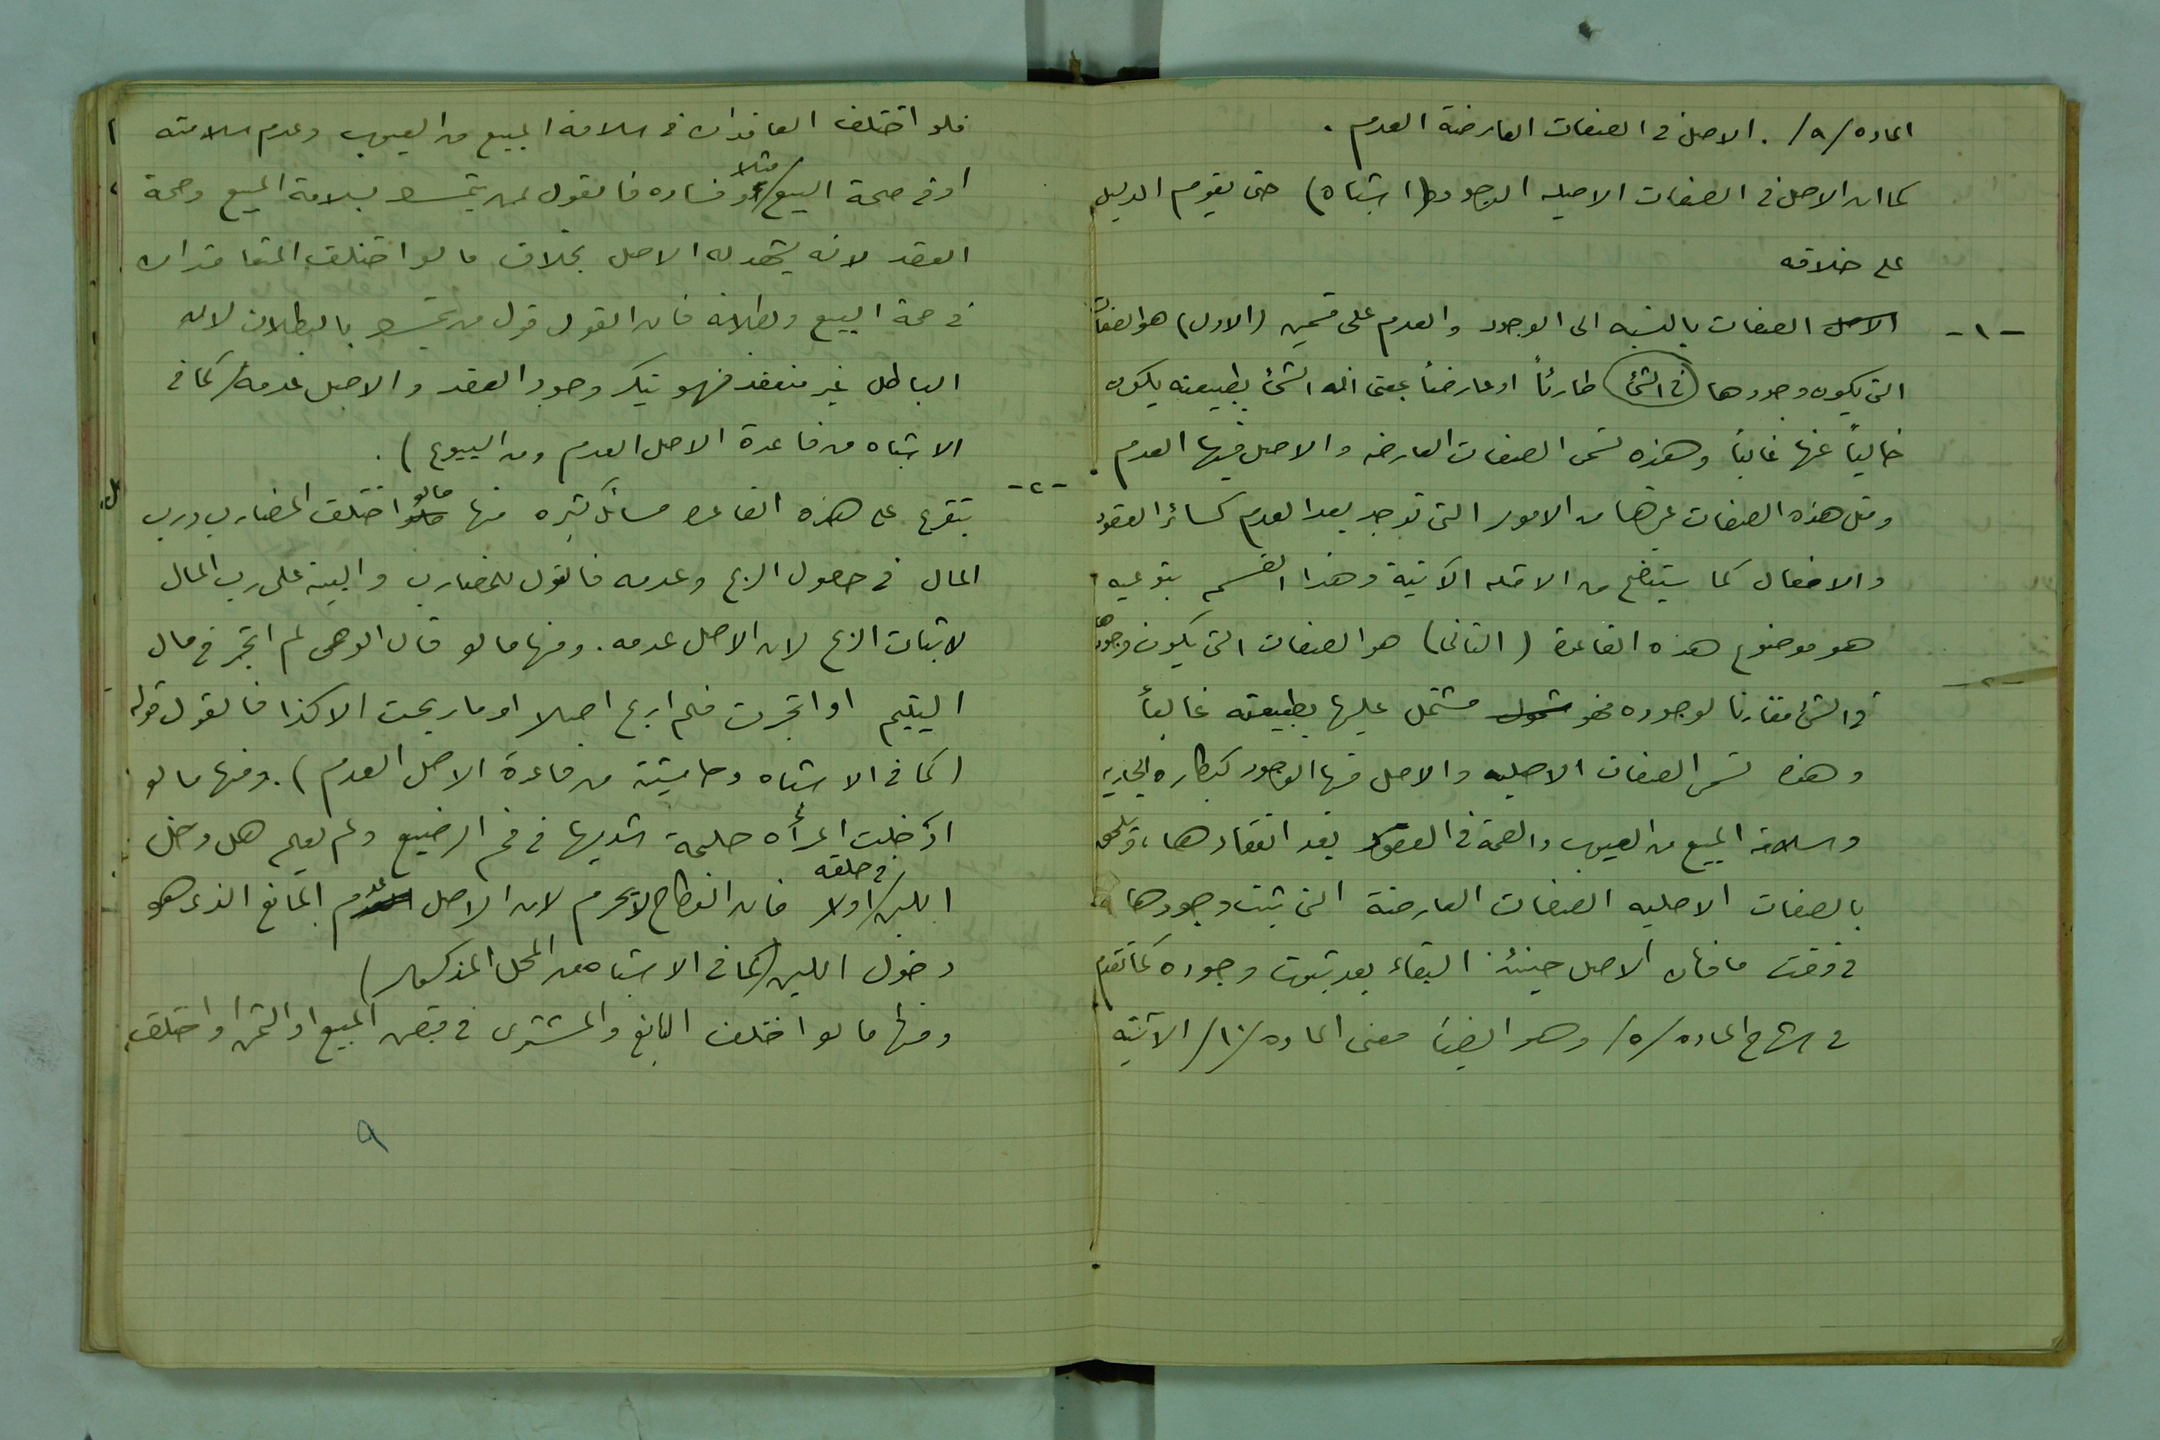 المادة /٩/ . الاصل في الصفات العارضة العدم .
كما ان الاصل في الصفات الاصليه الوجود (اشباه) حتى يقوم الدليل
على خلافه
-١- الاصل الصفات بالنسبه الى الوجود والعدم على قسمين (الاول) هو الصفات
التي يكون وجودها في الشئ طارئاً او عارضاً بمعنى انه الشئ بطبيعته يكون
خالياً عنها غالباً وهذه تسمى الصفات العارضه والاصل فيها العدم .
ومثل هذه الصفات غيرها من الامور التي توجد بعد العدم كسائر العقود
والافعال كما سيتضح من الامثله الآتية وهذا القسم بنوعيه
هو موضوع هذه القاعدة (الثاني) هو الصفات التي يكون وجودها
في الشئ مقارنا لوجوده فهو مشتمل عليها بطبيعته غالباً
وهذه تسمى الصفات الاصليه والاصل فيها الوجود كبكارة الجاريه
وسلامة المبيع من العيوب والصحة في العقود بعد انعقادها ، ويلحق
بالصفات الاصليه الصفات العارضة التي ثبت وجودها
في وقت ما فان الاصل حينئذ البقاء بعد ثبوت وجوده كما تقدم
في شرح الماده /٥/ وهو ايضا معنى الماده /١٠/ الآتية
فلو اختلف العاقدان في سلامة المبيع من العيوب وعدم سلامته
او في صحة البيع مثلا او فساده فالقول لمن يتمسك بسلامة المبيع وصحة
العقد لانه يشهد له الاصل بخلاف ما لو اختلف المتعاقدان
في صحة البيع وبطلانه فان القول قول من يتمسك بالبطلان لان
الباطل غير منعقد فهو ينكر وجود العقد والاصل عدمه (كما في
الاشباه من قاعدة الاصل العدم ومن البيوع ) .
-٢- يتفرع على هذه القاعدة مسائل كثيره منها ما لو اختلف المضارب ورب
المال في حصول الربح وعدمه فالقول للمضارب والبينه على رب المال
لاثبات الربح لان الاصل عدمه . ومنها ما لو قال الوصي لم اتجر في مال
اليتيم او اتجرت فلم اربح اصلا او ما ربحت الا كذا فالقول قوله
(كما في الاشباه وحاشيته من قاعدة الاصل العدم) . ومنها ما لو
ادخلت امرأة حلمة ثديها في فم الرضيع ولم يعلم هل دخل
اللبن في حلقه اولا فان النكاح لا يحرم لان الاصل عدم المانع الذي هو
دخول اللبن (كما في الاشباه من المحل المذكور)
ومنها ما لو اختلف البائع والمشتري في قبض المبيع او الثمن او اختلف
٩